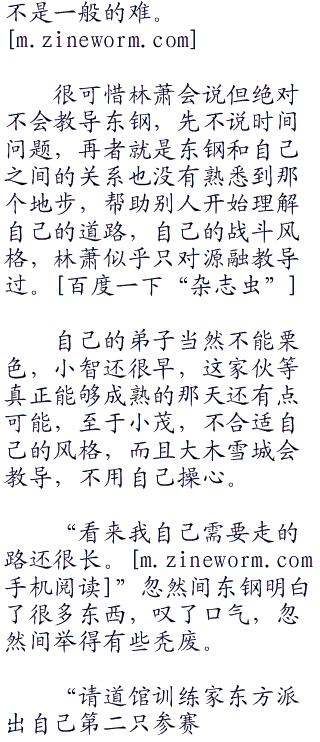 不是一般的难。
[m.zineworm.com]
很可惜林萧会说但绝对
不会教导东钢，先不说时间
问题，再者就是东钢和自己
之间的关系也没有熟悉到那
个地步，帮助别人开始理解
自己的道路，自己的战斗风
格，林萧似乎只对源融教导
过。[百度一下“杂志虫”]
自己的弟子当然不能栗
色，小智还很早，这家伙等
真正能够成熟的那天还有点
可能，至于小茂，不合适自
己的风格，而且大木雪城会
教导，不用自己操心。
“看来我自己需要走的
路还很长。[m.zineworm.com
手机阅读]”忽然间东钢明白
了很多东西，叹了口气，忽
然间举得有些秃废。
“请道馆训练家东方派
出自己第二只参赛